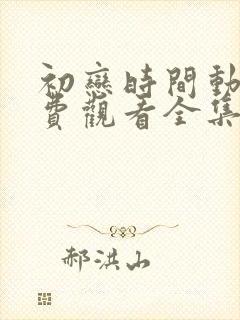 初戀時間動
費觀看全集
郝洪山